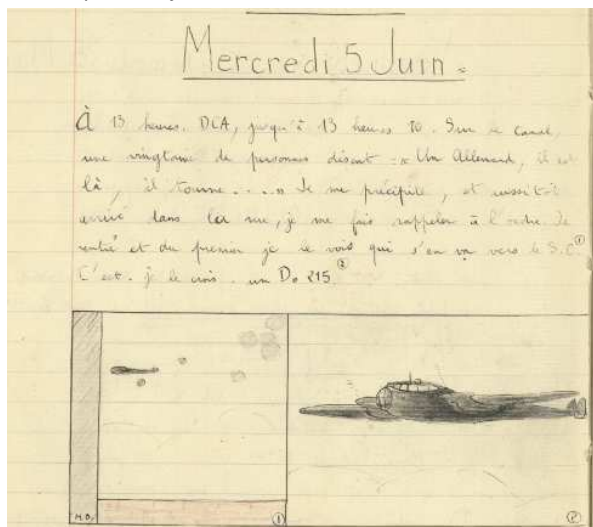 Mercredi 5 Juin.
À 13 heures. DCA, jusqu'à 13 heures 10. Sur le canal,
une vingtaine de personnes disent : « Un Allemand, il est
là, il tourne..... » Je me précipite, et aussitôt
arrivé dans la rue, je me fais rappeler à l'ordre. Je
rentre et du premier je le vois qui s'en va vers le S.C. ①
C'est. je le crois. un Do 215 ②
M.D. ①
②